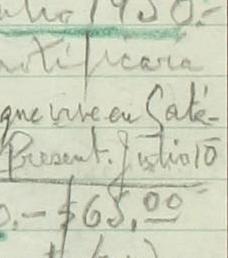 Julio 1950.-
notificara
que vive en Gaté-
Present. Julio 10
0.- $65.00